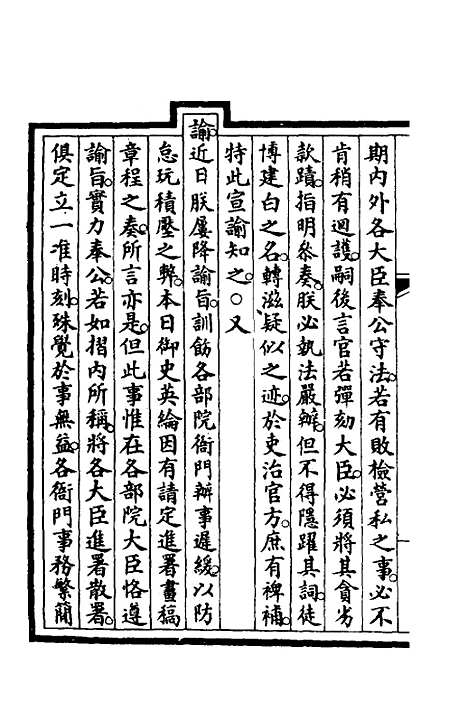 期內外各大臣奉公守法若有敗檢營私之事必不
肯稍有迴護嗣後言官若彈劾大臣必須將其貪劣
款蹟指明叅奏朕必執法嚴辦但不得隱躍其詞徒
博建白之名轉滋疑似之迹於吏治官方庶有裨補
特此宣諭知之○又
諭近日朕屢降諭旨訓飭各部院衙門辦事遲緩以防
怠玩積壓之弊本日御史英綸因有請定進署畫稿
章程之奏所言亦是但此事惟在各部院大臣恪遵
諭旨實力奉公若如摺內所稱將各大臣進署散署
俱定立一准時刻殊覺於事無益各衙門事務繁簡